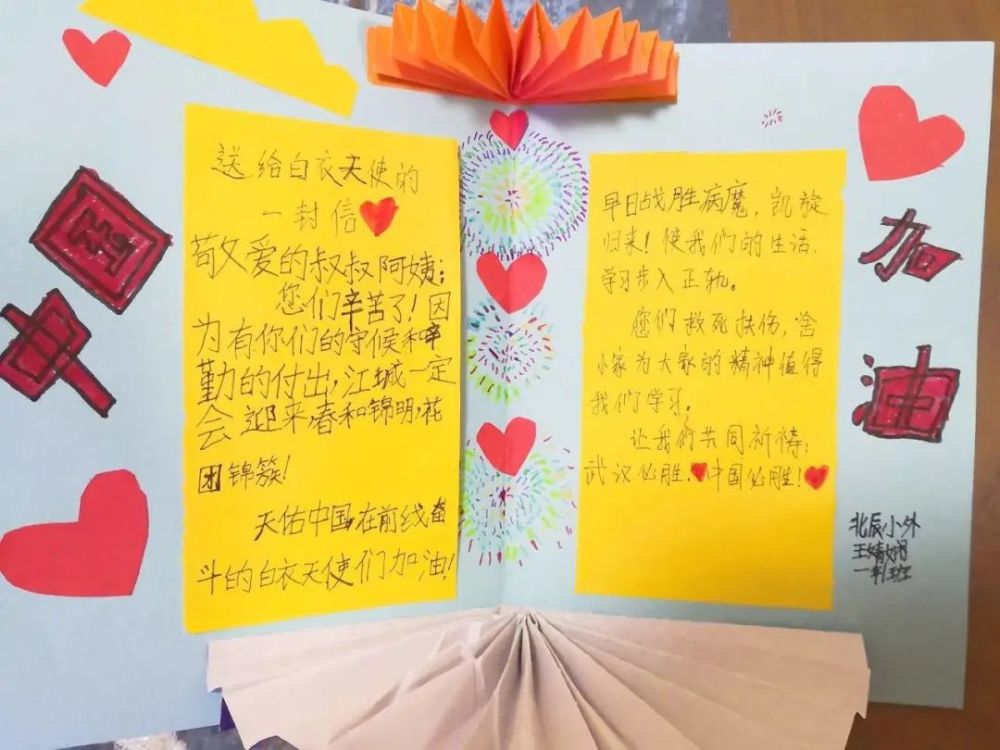 中国
送给白衣天使的
一封信
敬爱的叔叔阿姨：
您们辛苦了！因
为有你们的守候和辛
勤的付出，江城一定
会迎来，春和锦明，花
团锦簇！
天佑中国，在前线奋
斗的白衣天使们加油！
早日战胜病魔，凯旋
归来！使我们的生活、
学习步入正轨。
您们救死扶伤，舍
小家为大家的精神值得
我们学习。
让我们共同祈祷：
武汉必胜！中国必胜！
加油
北辰小外
王婧
一班